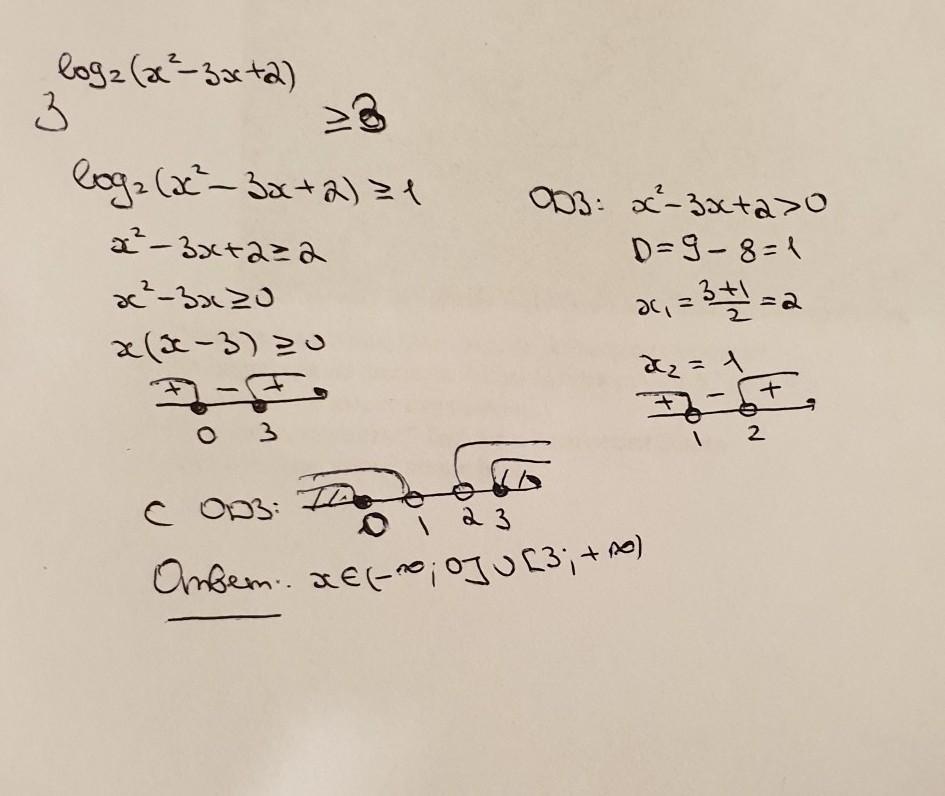 3^(log₂(x²-3x+2)) ≥ 3
log₂(x²-3x+2) ≥ 1
x²-3x+2 ≥ 2
x²-3x ≥ 0
x(x-3) ≥ 0
+ - +
0 3
ОДЗ: x²-3x+2>0
D=9-8=1
x₁ = (3+1)/2 = 2
x₂ = 1
+ - +
1 2
С ОДЗ:
0 1 2 3
Ответ: x∈(-∞;0]∪[3;+∞)